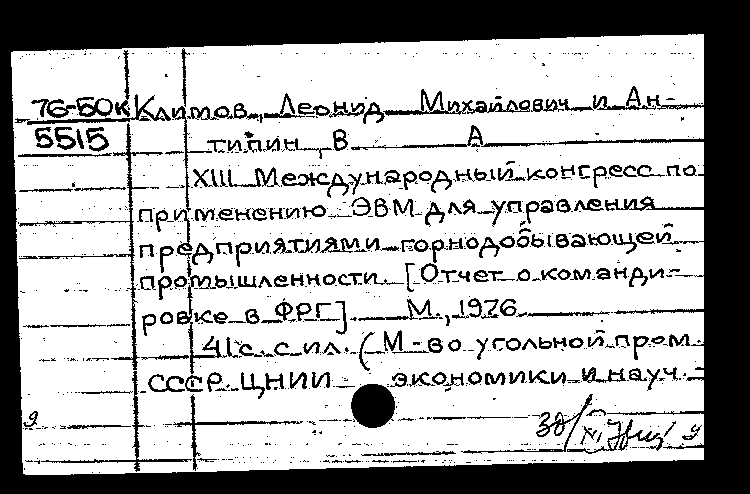 76-50к Климов, Леонид Михайлович и Ан-
5515 типин, В А
XIII Международный конгресс по
применению ЭВМ для управления
предприятиями горнодобывающей
промышленности. [Отчет о команди-
ровке в ФРГ]. М., 1976.
41 с. с ил. (М-во угольной пром.
СССР. ЦНИИ экономики и науч.-
9
30/XI 9